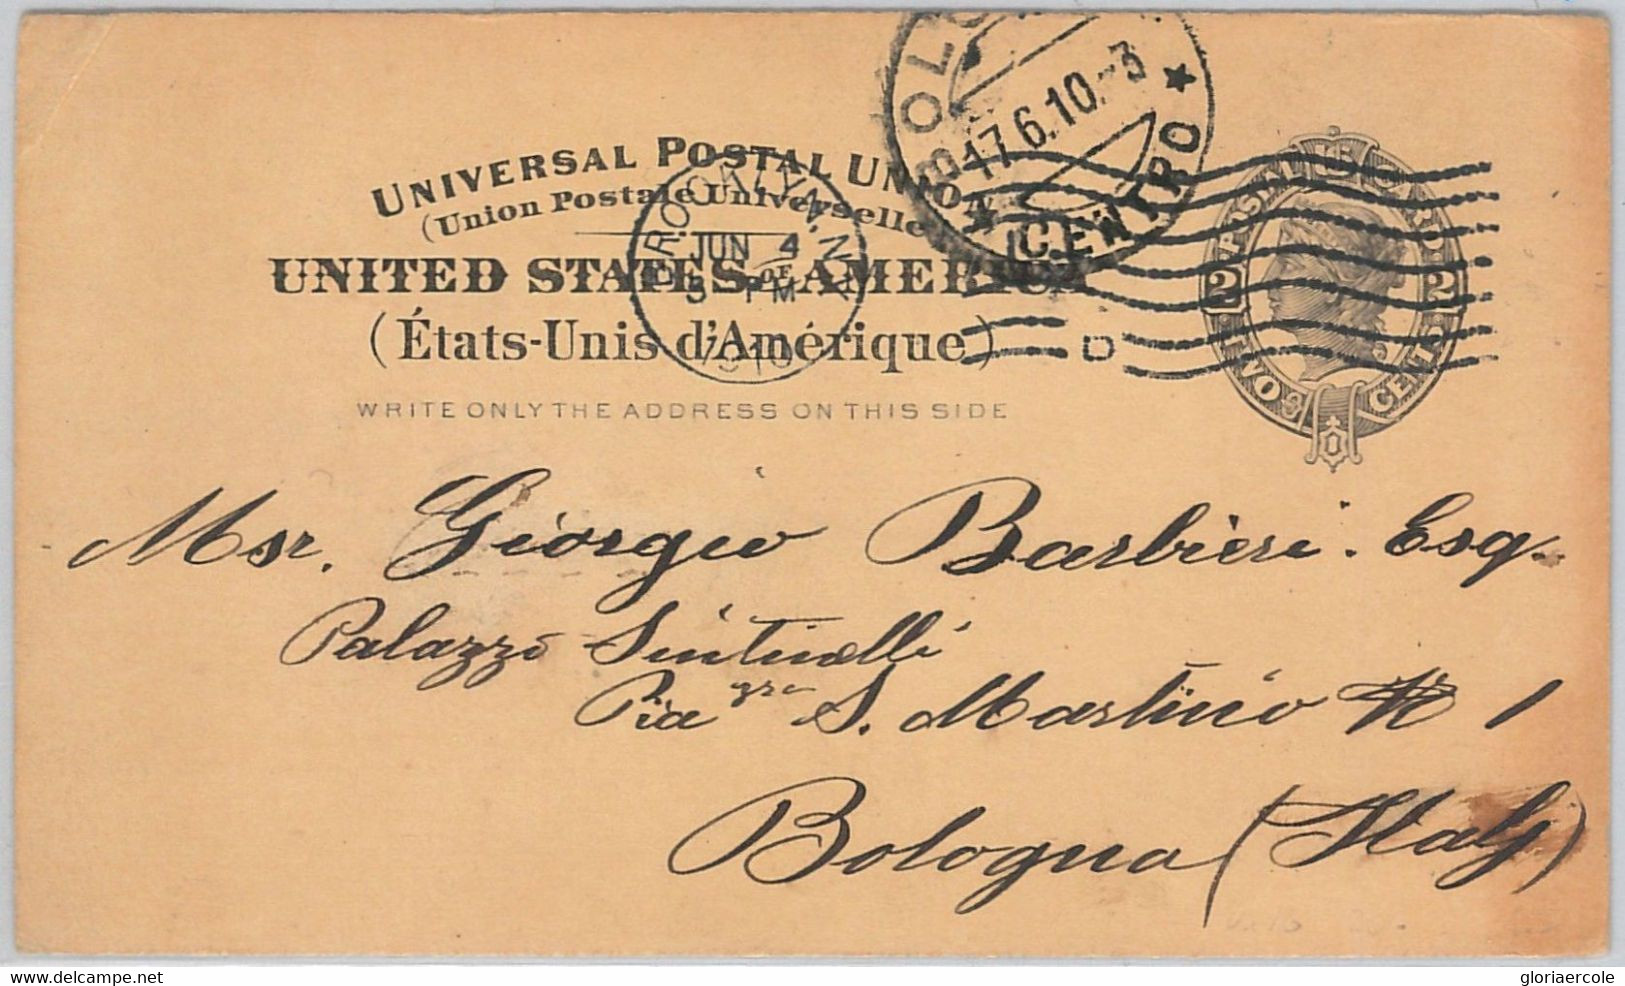 UNIVERSAL POSTAL UNION
(Union Postale Universelle)
UNITED STATES OF AMERICA
(États-Unis d'Amérique)
WRITE ONLY THE ADDRESS ON THIS SIDE
BROOKLYN, N.Y.
JUN 4
PM
1910
D
BOLO
17.6.10.-3
CENTRO
U.S. POSTAL CARD
2 2
TWO CENTS
Msr. Giorgio Barbieri. Esq.
Palazzo
S. Martino N 1
Bologna (Italy)
delcampe.net
gloriaercole